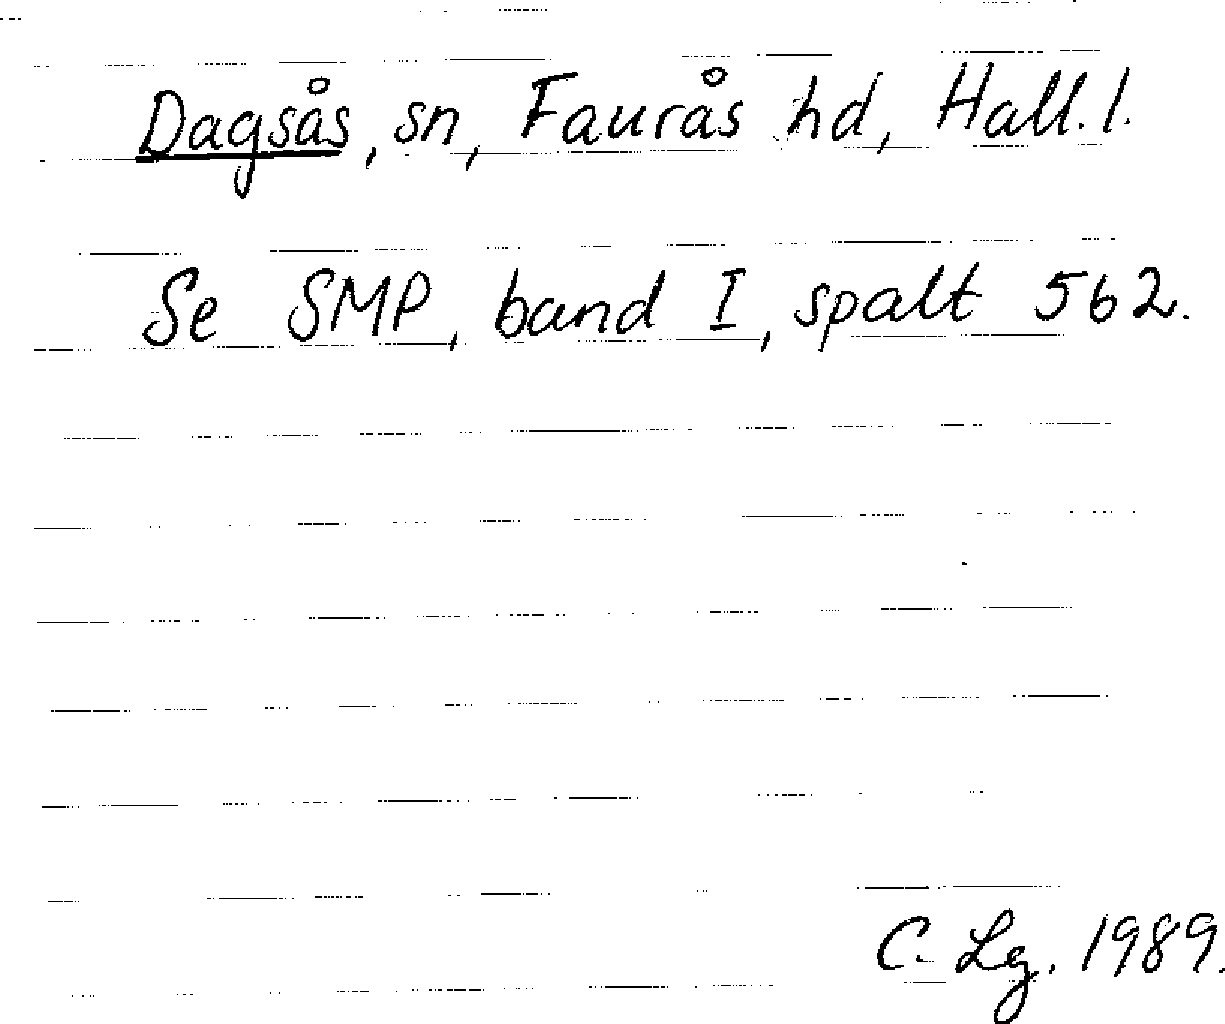 Dagsås, sn, Faurås hd, Hall. l.
Se SMP, band I, spalt 562.
C. Lg. 1989.